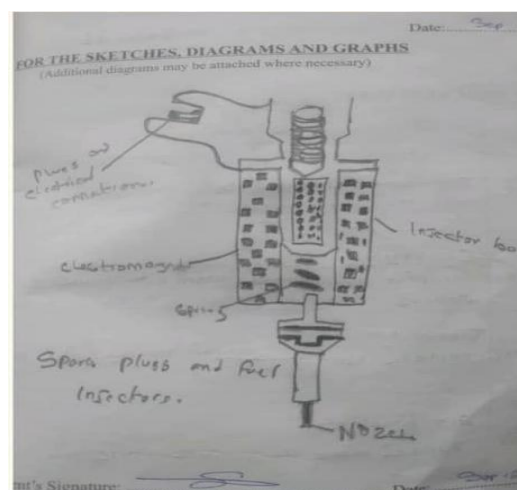 Date: Sep
FOR THE SKETCHES, DIAGRAMS AND GRAPHS
(Additional diagrams may be attached where necessary)
Plugs and
electrical
Injector bo
electromagn
Spring
Spark plugs and fuel
Injectors.
Nozel
nt's Signature:
Date: Sep